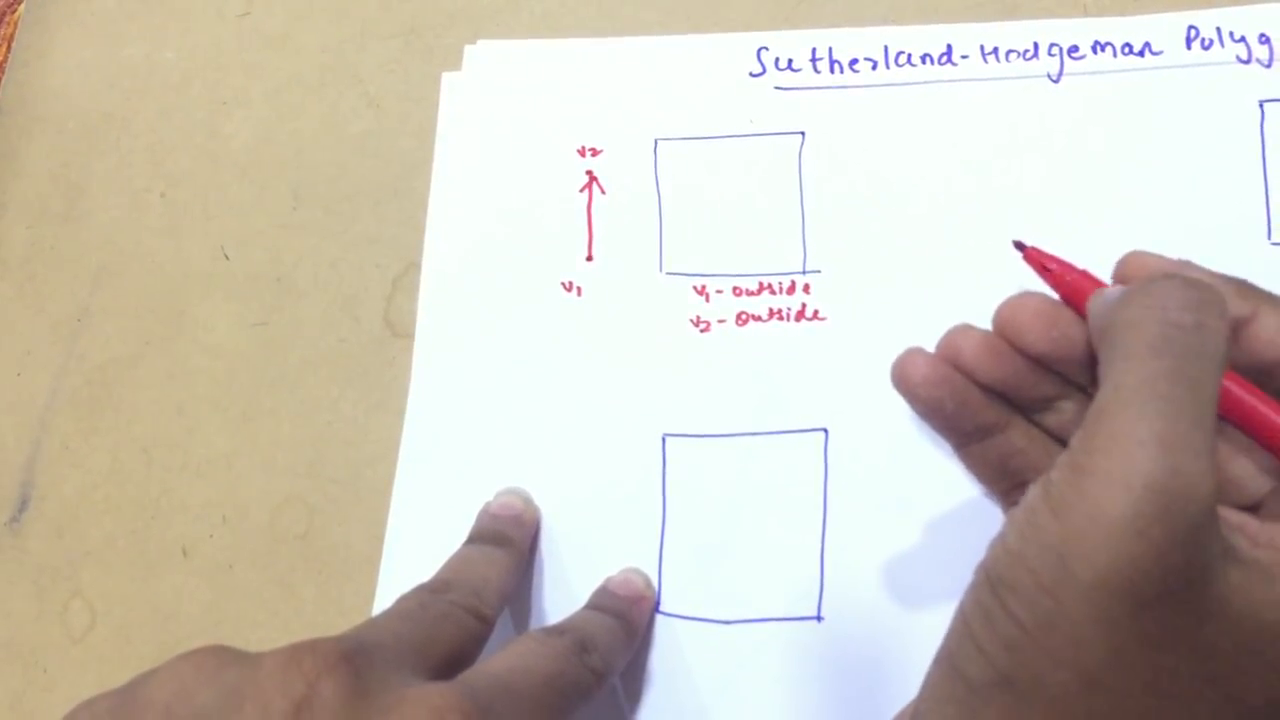 Sutherland-Hodgeman Polyg
v2
v1
v1 - outside
v2 - outside